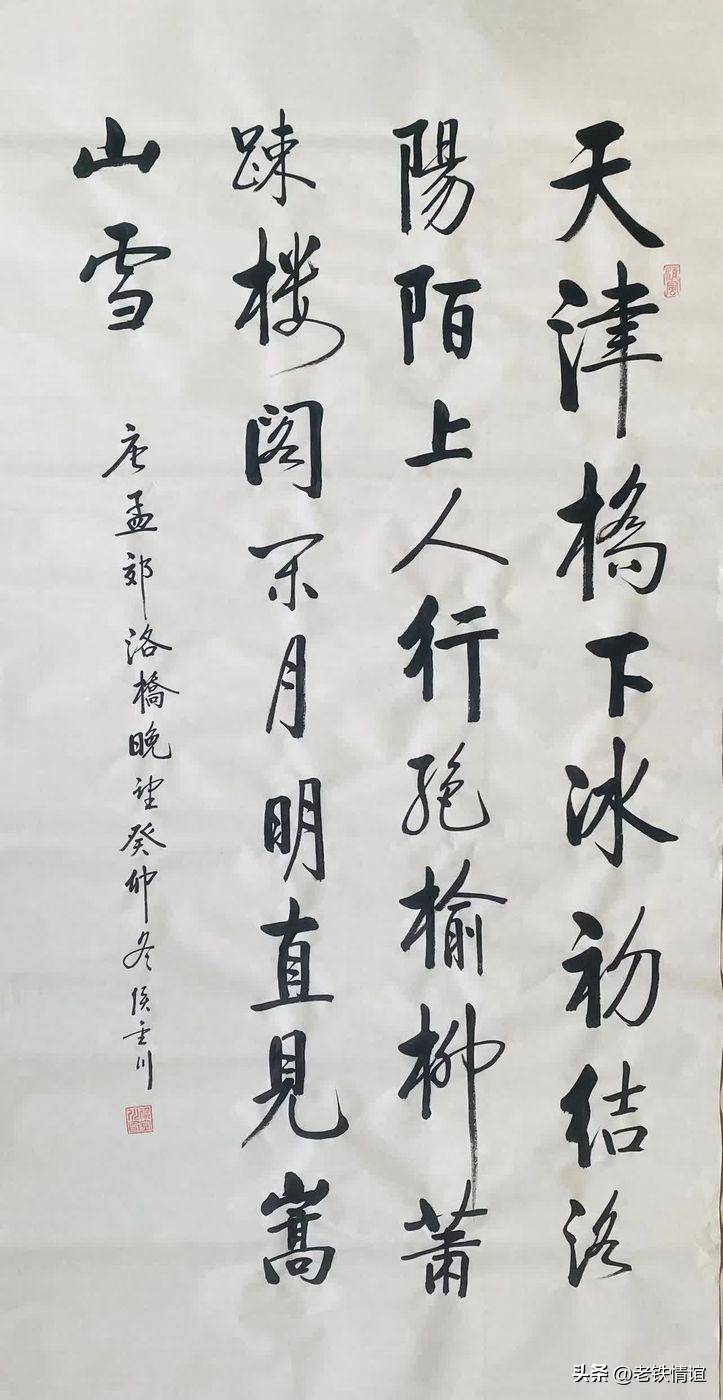 天津橋下冰初结洛
陽陌上人行绝榆柳萧
踈楼阁闲月明直見嵩
山雪
唐孟郊洛橋晚望癸卯冬侯川
头条 @老铁情谊